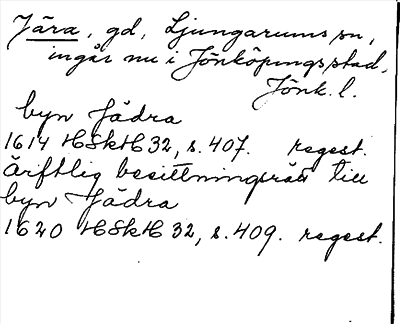 Jära, gd, Ljungarums sn,
ingår nu i Jönköpings stad,
Jönk. l.
byn Jädra
1614 HSkH 32, s. 407. regest.
Ärftlig besittningsrätt till
byn Jädra
1620 HSkH 32, s. 409. regest.